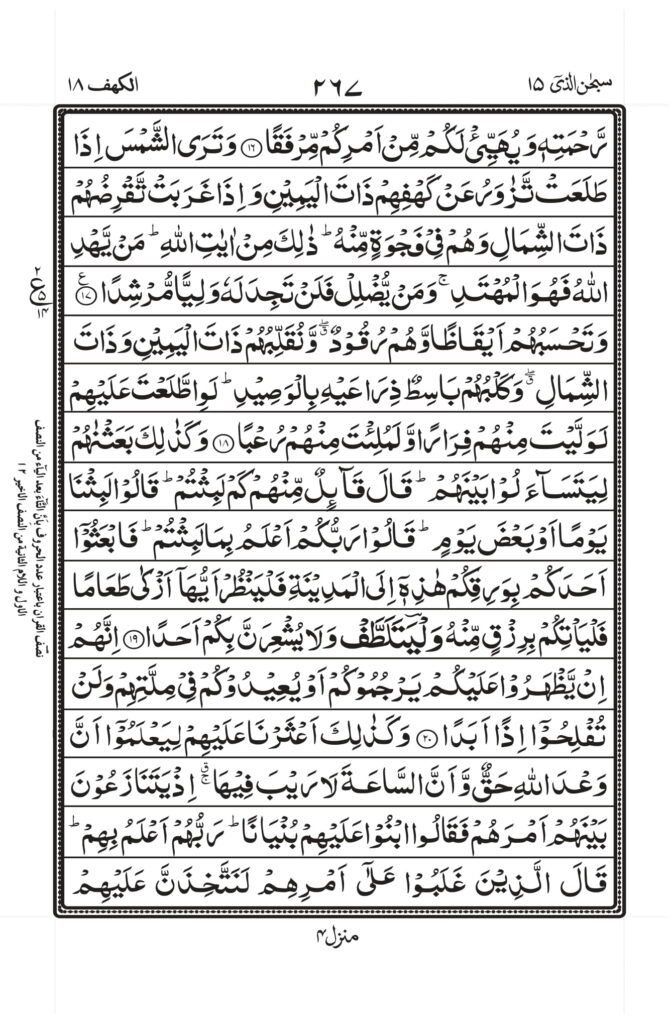 سبحٰن الذیٓ ۱۵
۲۶۷
الکہف ۱۸
رَّحۡمَتِهٖ وَيُهَيِّئۡ لَكُمۡ مِّنۡ اَمۡرِكُمۡ مِّرۡفَقًا ﴿۱۶﴾ وَتَرَى الشَّمۡسَ اِذَا
طَلَعَتۡ تَّزٰوَرُ عَنۡ كَهۡفِهِمۡ ذَاتَ الۡيَمِيۡنِ وَاِذَا غَرَبَتۡ تَّقۡرِضُهُمۡ
ذَاتَ الشِّمَالِ وَهُمۡ فِىۡ فَجۡوَةٍ مِّنۡهُ‌ ؕ ذٰ لِكَ مِنۡ اٰيٰتِ اللّٰهِ‌ ؕ مَنۡ يَّهۡدِ
اللّٰهُ فَهُوَ الۡمُهۡتَدِ‌ ۚ وَمَنۡ يُّضۡلِلۡ فَلَنۡ تَجِدَ لَهٗ وَلِيًّا مُّرۡشِدًا ﴿۱۷﴾ ع
وَ تَحۡسَبُهُمۡ اَيۡقَاظًا وَّهُمۡ رُقُوۡدٌ ‌ۖ ۗ وَنُـقَلِّبُهُمۡ ذَاتَ الۡيَمِيۡنِ وَ ذَاتَ
الشِّمَالِ‌ ۖ ۗ وَكَلۡبُهُمۡ بَاسِطٌ ذِرَاعَيۡهِ بِالۡوَصِيۡدِ‌ ؕ لَوِ اطَّلَعۡتَ عَلَيۡهِمۡ
لَوَلَّيۡتَ مِنۡهُمۡ فِرَارًا وَّلَمُلِئۡتَ مِنۡهُمۡ رُعۡبًا ﴿۱۸﴾ وَكَذٰلِكَ بَعَثۡنٰهُمۡ
لِيَتَسَآءَلُوۡا بَيۡنَهُمۡ‌ ؕ قَالَ قَآئِلٌ مِّنۡهُمۡ كَمۡ لَبِثۡتُمۡ ؕ قَالُوۡا لَبِثۡنَا
يَوۡمًا اَوۡ بَعۡضَ يَوۡمٍ‌ ؕ قَالُوۡا رَبُّكُمۡ اَعۡلَمُ بِمَا لَبِثۡتُمۡ ؕ فَابۡعَثُوۡۤا
اَحَدَكُمۡ بِوَرِقِكُمۡ هٰذِهٖۤ اِلَى الۡمَدِيۡنَةِ فَلۡيَنۡظُرۡ اَيُّهَاۤ اَزۡكٰى طَعَامًا
فَلۡيَاۡتِكُمۡ بِرِزۡقٍ مِّنۡهُ وَلۡيَتَلَطَّفۡ وَلَا يُشۡعِرَنَّ بِكُمۡ اَحَدًا ﴿۱۹﴾ اِنَّهُمۡ
اِنۡ يَّظۡهَرُوۡا عَلَيۡكُمۡ يَرۡجُمُوۡكُمۡ اَوۡ يُعِيۡدُوۡكُمۡ فِىۡ مِلَّتِهِمۡ وَلَنۡ
تُفۡلِحُوۡۤا اِذًا اَبَدًا ﴿۲۰﴾ وَكَذٰلِكَ اَعۡثَرۡنَا عَلَيۡهِمۡ لِيَـعۡلَمُوۡۤا اَنَّ
وَعۡدَ اللّٰهِ حَقٌّ وَّاَنَّ السَّاعَةَ لَا رَيۡبَ فِيۡهَا ۚ ۗ اِذۡ يَتَـنَازَعُوۡنَ
بَيۡنَهُمۡ اَمۡرَهُمۡ‌ فَقَالُوۡا ابۡنُوۡا عَلَيۡهِمۡ بُنۡيَانًـا ‌ؕ رَبُّهُمۡ اَعۡلَمُ بِهِمۡ‌ؕ
قَالَ الَّذِيۡنَ غَلَبُوۡا عَلٰٓى اَمۡرِهِمۡ لَـنَـتَّخِذَنَّ عَلَيۡهِمۡ
نصف القران باعتبار عدد الحروف بان التاء بعد الیاء من النصف
الاول و اللام الثانیة من النصف الاخیر ۱۲
منزل ۴